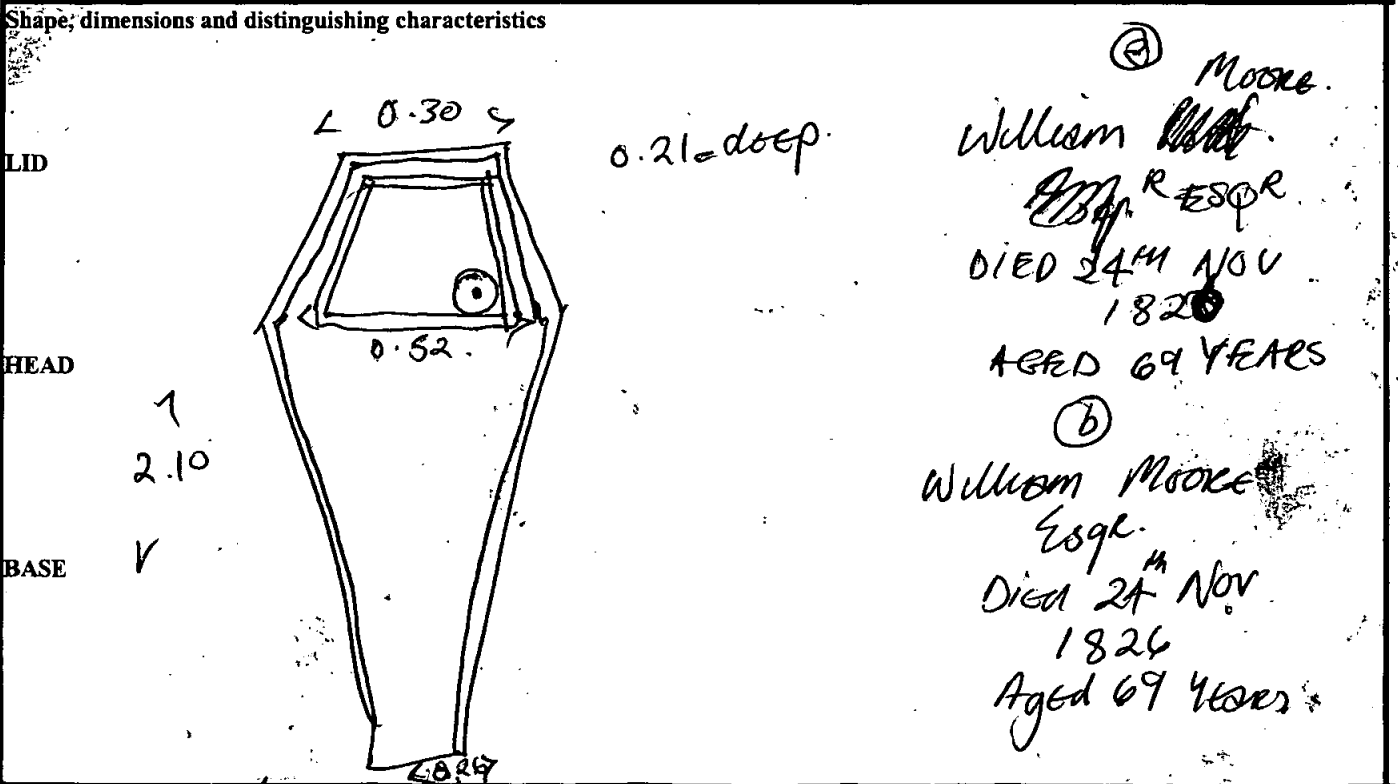 Shape, dimensions and distinguishing characteristics
LID
HEAD
BASE
0.30
0.21 deep.
0.52.
2.10
a
Moore.
William
R ESQR
DIED 24TH NOV
182
AGED 69 YEARS
b
William Moore
Esqr.
Died 24th Nov
1826
Aged 69 Years